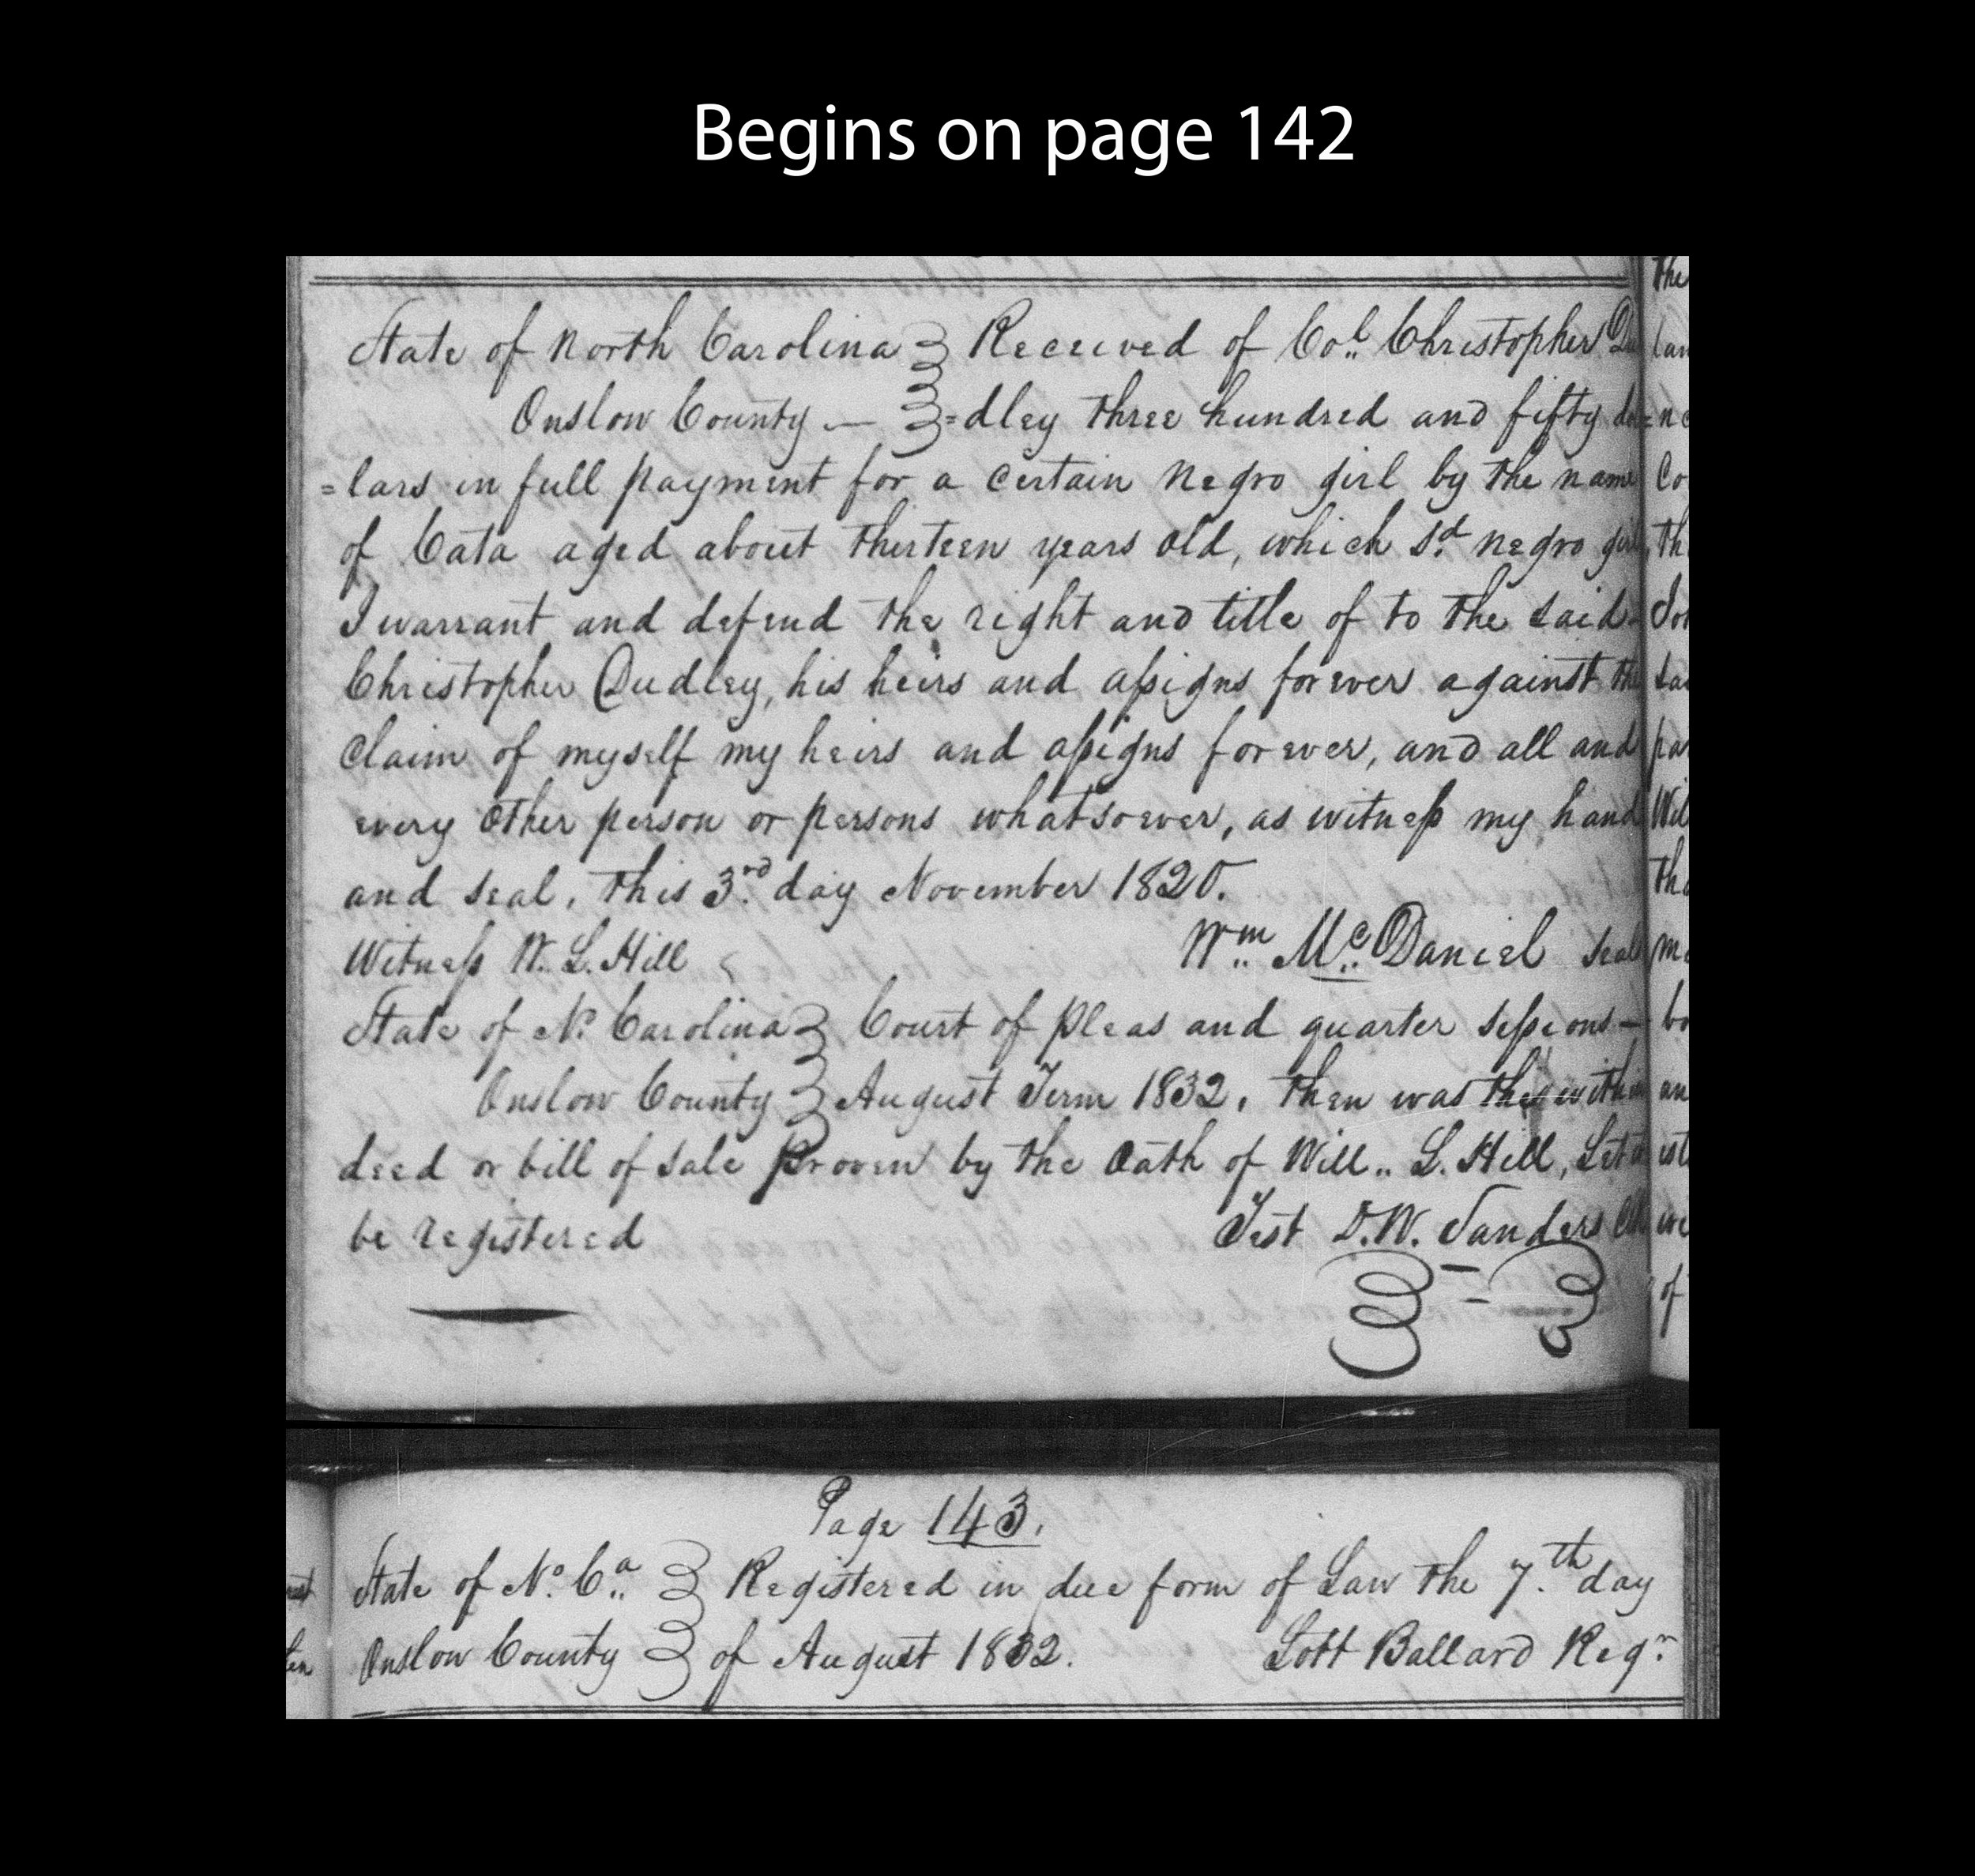 Begins on page 142
State of North Carolina Received of Col. Christopher Du
Onslow County — =dley three hundred and fifty dol
=lars in full payment for a certain negro girl by the name
of Cata aged about thirteen years old, which sd. negro girl
I warrant and defend the right and title of to the said
Christopher Dudley, his heirs and assigns forever against the
claim of myself my heirs and assigns forever, and all and
every other person or persons whatsoever, as witness my hand
and seal, this 3rd. day November 1820.
Witness W. L. Hill Wm.. Mc.. Daniel seal
State of No. Carolina Court of pleas and quarter sessions —
Onslow County August Term 1832, then was the within
deed or bill of sale proven by the oath of Will.. L. Hill, Let it
be registered Test D. W. Sanders Clk
Page 143.
State of No. Ca.. Registered in due form of Law the 7.th day
Onslow County of August 1832. Lott Ballard Regr.